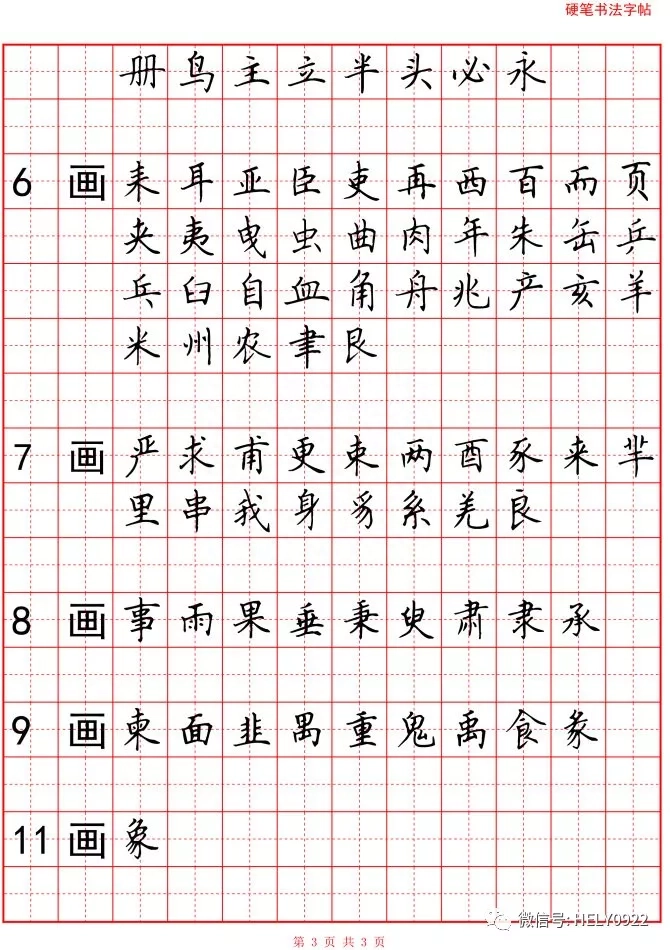 硬笔书法字帖
册鸟主立半头必永
6 画 耒耳亚臣吏再西百而页
夹夷曳虫曲肉年朱缶乒
乓臼自血角舟兆产亥羊
米州农聿艮
7 画 严求甫更束两酉豕来芈
里串我身豸系羌良
8 画 事雨果垂秉臾肃隶承
9 画 柬面韭禺重鬼禹食彖
11 画 象
微信号: HELY0922
第 3 页 共 3 页